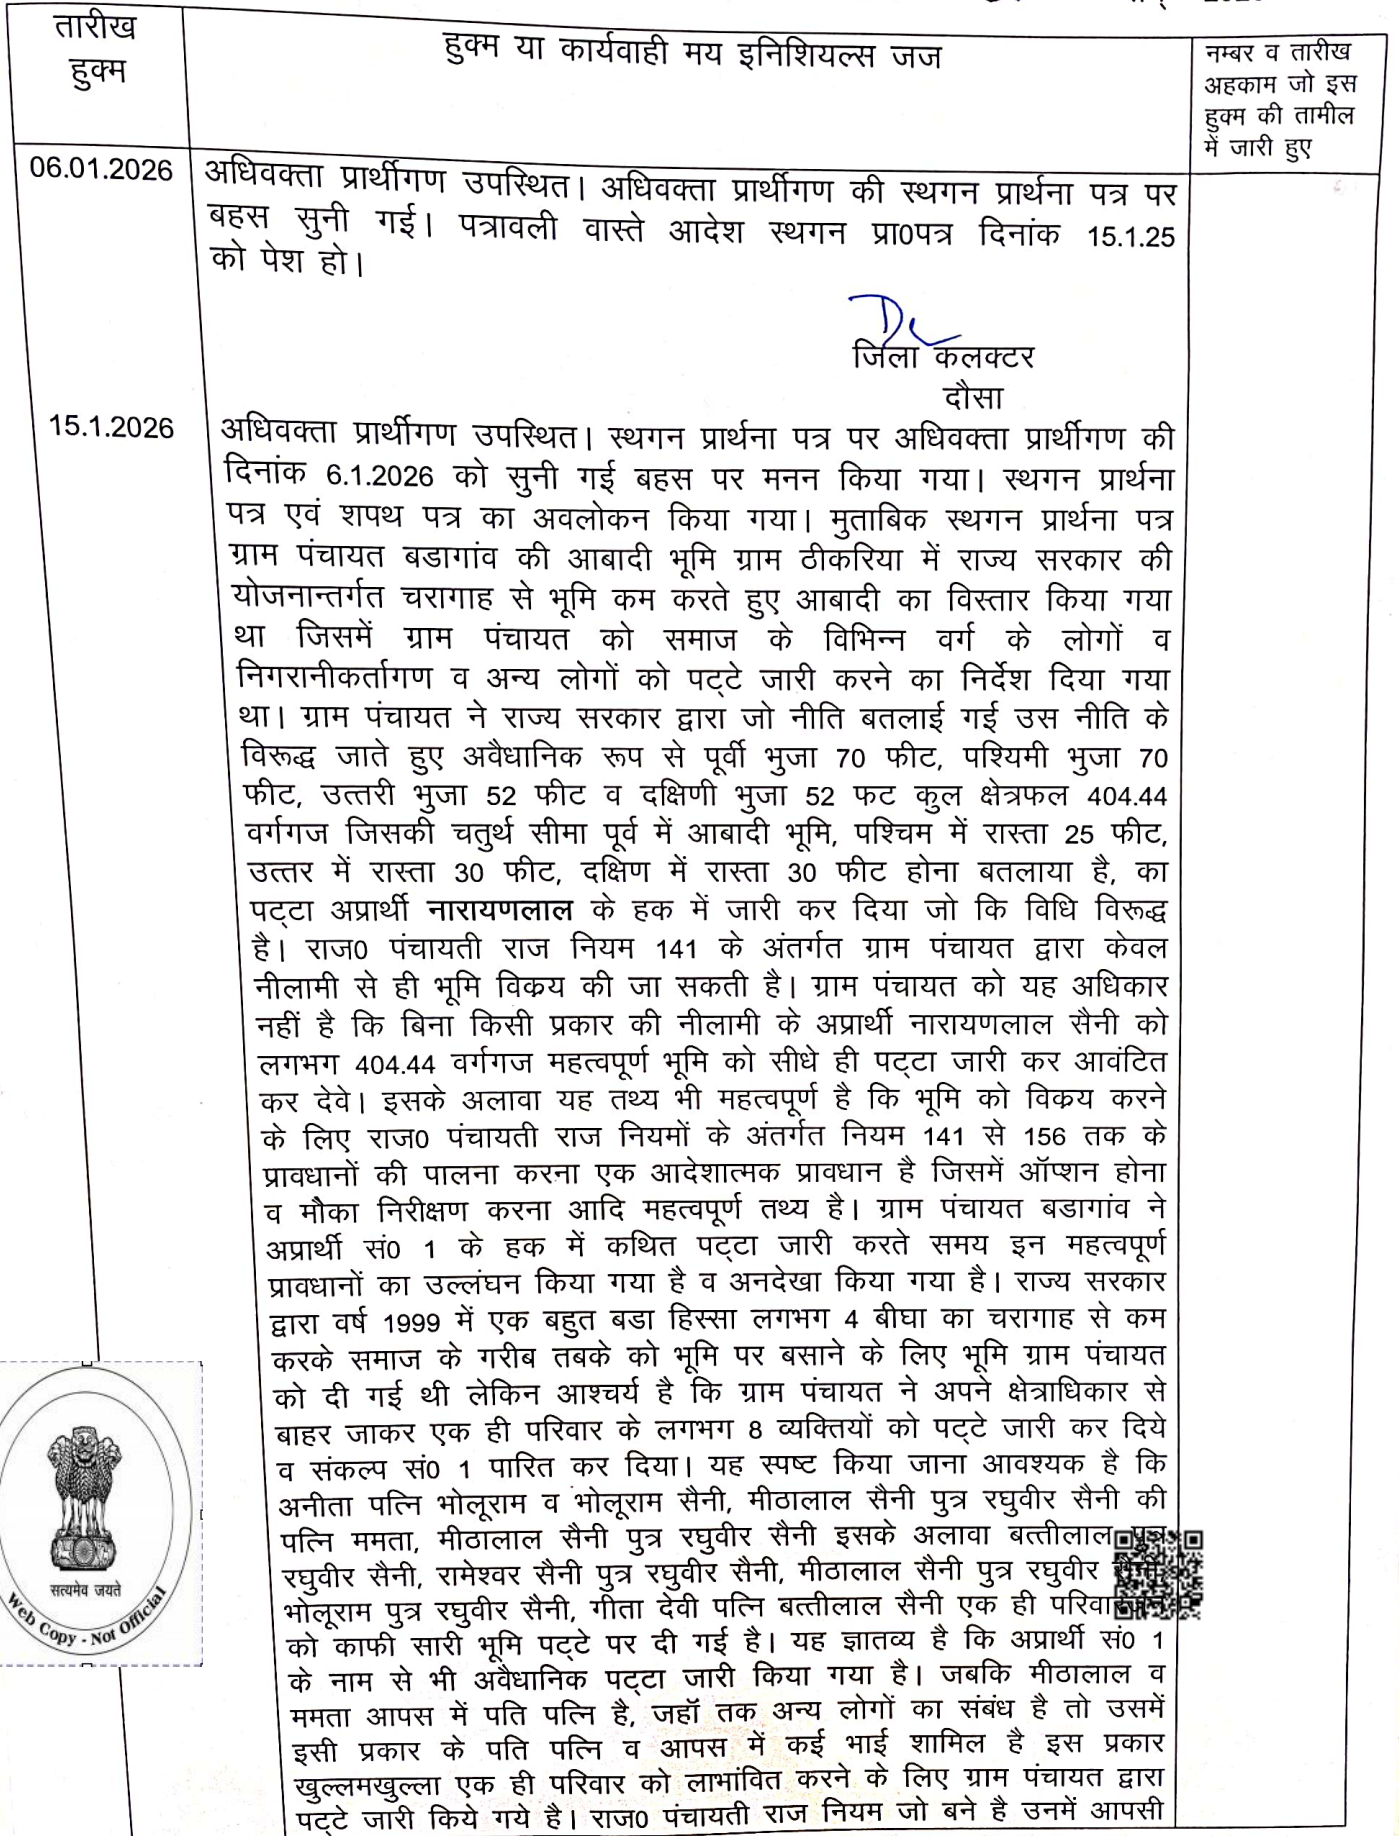 तारीख
हुक्म
हुक्म या कार्यवाही मय इनिशियल्स जज
नम्बर व तारीख
अहकाम जो इस
हुक्म की तामील
में जारी हुए
06.01.2026
अधिवक्ता प्रार्थीगण उपस्थित। अधिवक्ता प्रार्थीगण की स्थगन प्रार्थना पत्र पर
बहस सुनी गई। पत्रावली वास्ते आदेश स्थगन प्रा0पत्र दिनांक 15.1.25
को पेश हो।
जिला कलक्टर
दौसा
15.1.2026
अधिवक्ता प्रार्थीगण उपस्थित। स्थगन प्रार्थना पत्र पर अधिवक्ता प्रार्थीगण की
दिनांक 6.1.2026 को सुनी गई बहस पर मनन किया गया। स्थगन प्रार्थना
पत्र एवं शपथ पत्र का अवलोकन किया गया। मुताबिक स्थगन प्रार्थना पत्र
ग्राम पंचायत बडागांव की आबादी भूमि ग्राम ठीकरिया में राज्य सरकार की
योजनान्तर्गत चरागाह से भूमि कम करते हुए आबादी का विस्तार किया गया
था जिसमें ग्राम पंचायत को समाज के विभिन्न वर्ग के लोगों व
निगरानीकर्तागण व अन्य लोगों को पट्टे जारी करने का निर्देश दिया गया
था। ग्राम पंचायत ने राज्य सरकार द्वारा जो नीति बतलाई गई उस नीति के
विरूद्ध जाते हुए अवैधानिक रूप से पूर्वी भुजा 70 फीट, पश्यिमी भुजा 70
फीट, उत्तरी भुजा 52 फीट व दक्षिणी भुजा 52 फट कुल क्षेत्रफल 404.44
वर्गगज जिसकी चतुर्थ सीमा पूर्व में आबादी भूमि, पश्चिम में रास्ता 25 फीट,
उत्तर में रास्ता 30 फीट, दक्षिण में रास्ता 30 फीट होना बतलाया है, का
पट्टा अप्रार्थी नारायणलाल के हक में जारी कर दिया जो कि विधि विरूद्ध
है। राज0 पंचायती राज नियम 141 के अंतर्गत ग्राम पंचायत द्वारा केवल
नीलामी से ही भूमि विक्रय की जा सकती है। ग्राम पंचायत को यह अधिकार
नहीं है कि बिना किसी प्रकार की नीलामी के अप्रार्थी नारायणलाल सैनी को
लगभग 404.44 वर्गगज महत्वपूर्ण भूमि को सीधे ही पट्टा जारी कर आवंटित
कर देवे। इसके अलावा यह तथ्य भी महत्वपूर्ण है कि भूमि को विक्रय करने
के लिए राज0 पंचायती राज नियमों के अंतर्गत नियम 141 से 156 तक के
प्रावधानों की पालना करना एक आदेशात्मक प्रावधान है जिसमें ऑप्शन होना
व मौका निरीक्षण करना आदि महत्वपूर्ण तथ्य है। ग्राम पंचायत बडागांव ने
अप्रार्थी सं0 1 के हक में कथित पट्टा जारी करते समय इन महत्वपूर्ण
प्रावधानों का उल्लंघन किया गया है व अनदेखा किया गया है। राज्य सरकार
द्वारा वर्ष 1999 में एक बहुत बडा हिस्सा लगभग 4 बीघा का चरागाह से कम
करके समाज के गरीब तबके को भूमि पर बसाने के लिए भूमि ग्राम पंचायत
को दी गई थी लेकिन आश्चर्य है कि ग्राम पंचायत ने अपने क्षेत्राधिकार से
बाहर जाकर एक ही परिवार के लगभग 8 व्यक्तियों को पट्टे जारी कर दिये
व संकल्प सं0 1 पारित कर दिया। यह स्पष्ट किया जाना आवश्यक है कि
अनीता पत्नि भोलूराम व भोलूराम सैनी, मीठालाल सैनी पुत्र रघुवीर सैनी की
पत्नि ममता, मीठालाल सैनी पुत्र रघुवीर सैनी इसके अलावा बत्तीलाल पुत्र
रघुवीर सैनी, रामेश्वर सैनी पुत्र रघुवीर सैनी, मीठालाल सैनी पुत्र रघुवीर सैनी,
भोलूराम पुत्र रघुवीर सैनी, गीता देवी पत्नि बत्तीलाल सैनी एक ही
को काफी सारी भूमि पट्टे पर दी गई है। यह ज्ञातव्य है कि अप्रार्थी सं0 1
के नाम से भी अवैधानिक पट्टा जारी किया गया है। जबकि मीठालाल व
ममता आपस में पति पत्नि है, जहॉ तक अन्य लोगों का संबंध है तो उसमें
इसी प्रकार के पति पत्नि व आपस में कई भाई शामिल है इस प्रकार
खुल्लमखुल्ला एक ही परिवार को लाभांवित करने के लिए ग्राम पंचायत द्वारा
पट्टे जारी किये गये है। राज0 पंचायती राज नियम जो बने है उनमें आपसी
सत्यमेव जयते
Web Copy - Not Official